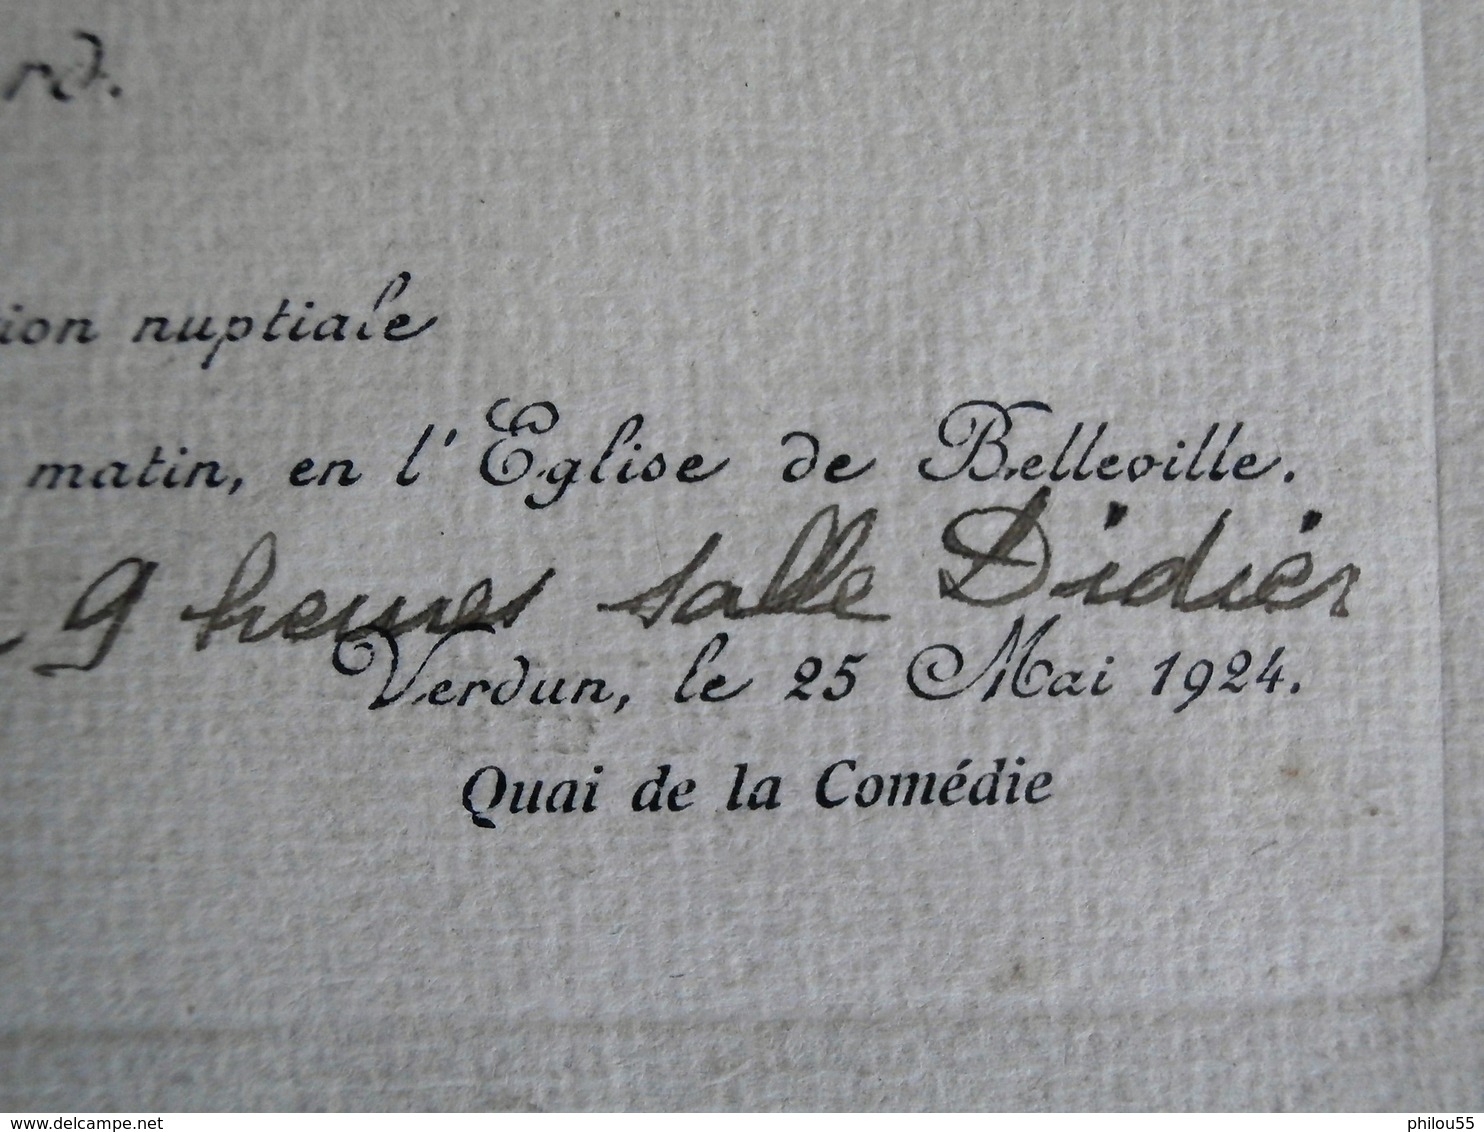 rd.
ion nuptiale
matin, en l'Eglise de Belleville.
9 heures salle Didier
Verdun, le 25 Mai 1924.
Quai de la Comédie
delcampe.net
philou55